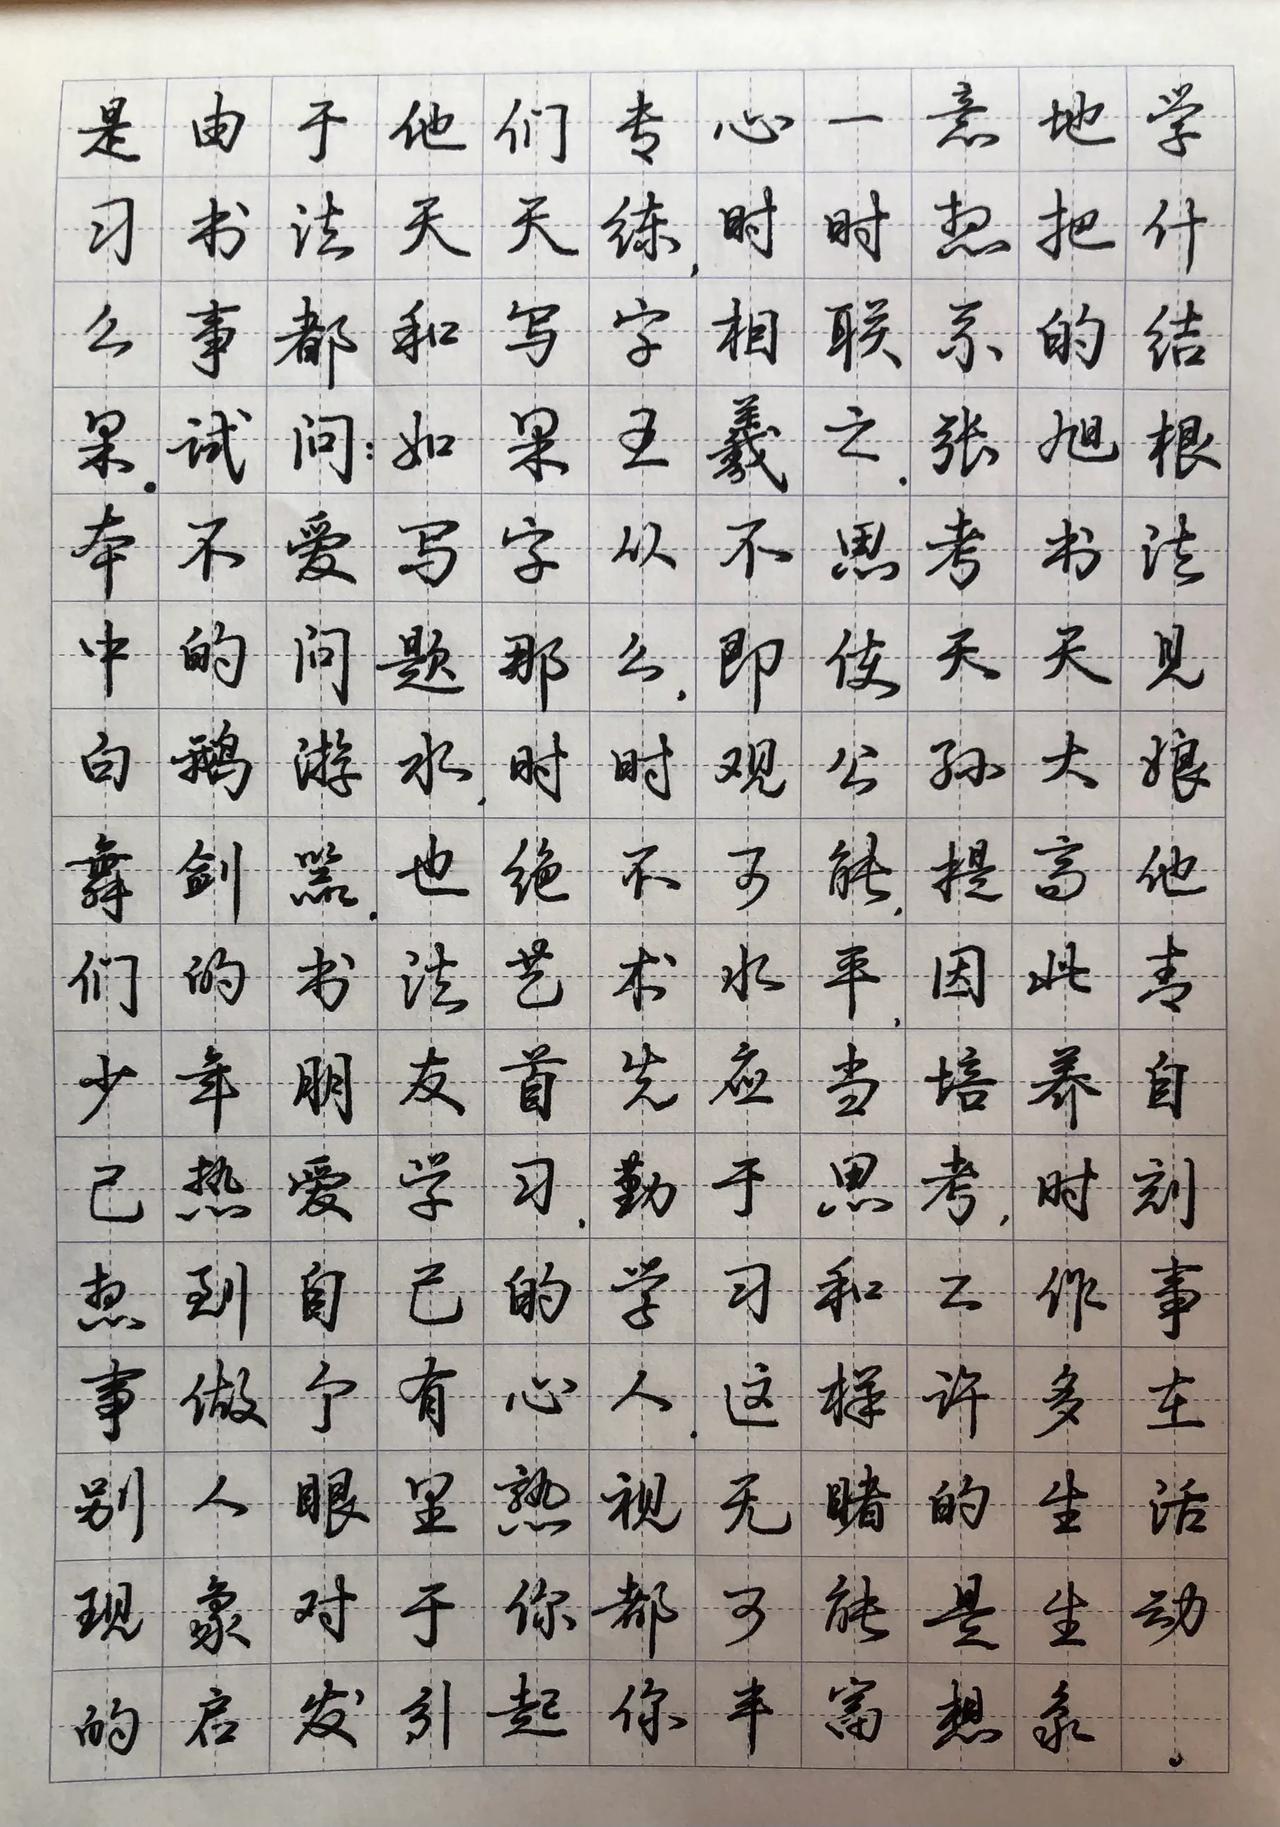 是由于他们专心一意地学
习书法天天练,时时想把什
么事都和写字相联系的结
果.试问:如果王羲之.张旭根
本不爱写字从不思考书法
中的问题那么,即使天天见
白鹅游水,时时观公孙大娘
舞剑器.也绝不可能,提高他
们的书法艺术水平,因此青
少年朋友首先应当培养自
己热爱学习,勤于思考,时刻
想到自己的学习和工作事
事做个有心人.这样许多在
别人眼里熟视无睹的生活
现象对于你都可能是生动
的启发引起你丰富想象.